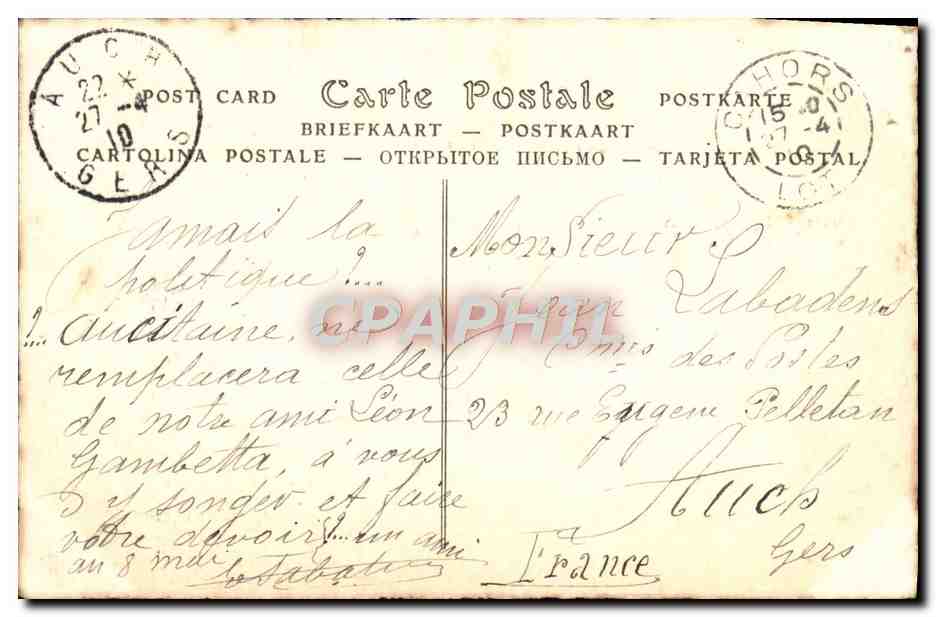 AUCH
22 *
27 -4
10
GERS
CAHORS
15
27 -4
LOT
POST CARD Carte Postale POSTKARTE
BRIEFKAART — POSTKAART
CARTOLINA POSTALE — ОТКРЫТОЕ ПИСЬМО — TARJETA POSTAL
CPAPHIL
Jamais la
politique!....
!.... aucitaine, ne
remplacera celle
de notre ami Léon
Gambetta, à vous
d y songer et faire
vôtre devoir!... un ami
au 8 mai
Monsieur
Jean Labadens
Cmis des Postes
23 rue Eugene Pelletan
Auch
Gers
France